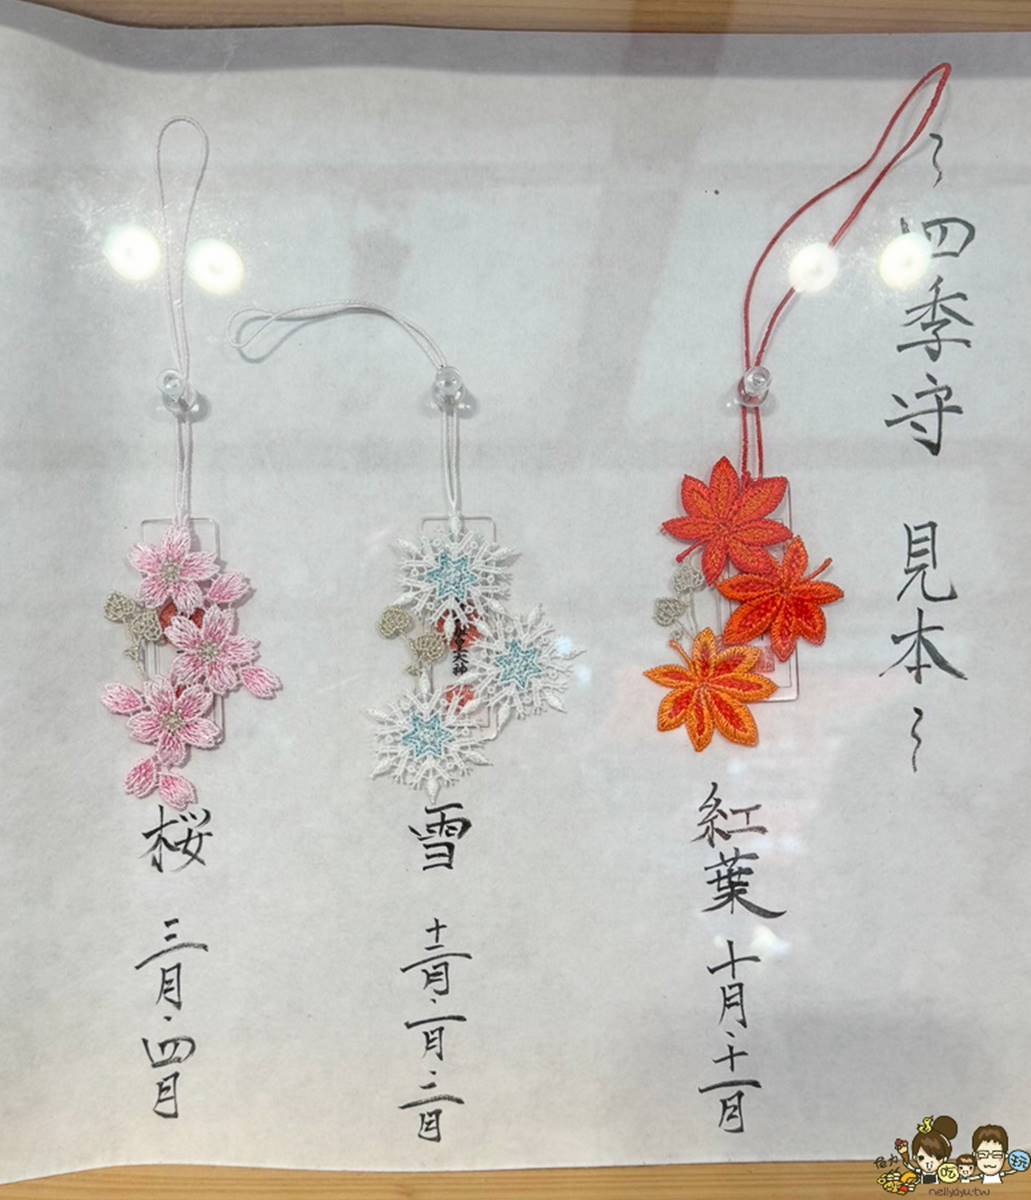 ～四季守 見本～
紅葉 十月・十一月
雪 十二月・一月・二月
桜 三月・四月
大神
吃
玩
nellyoyo.tw